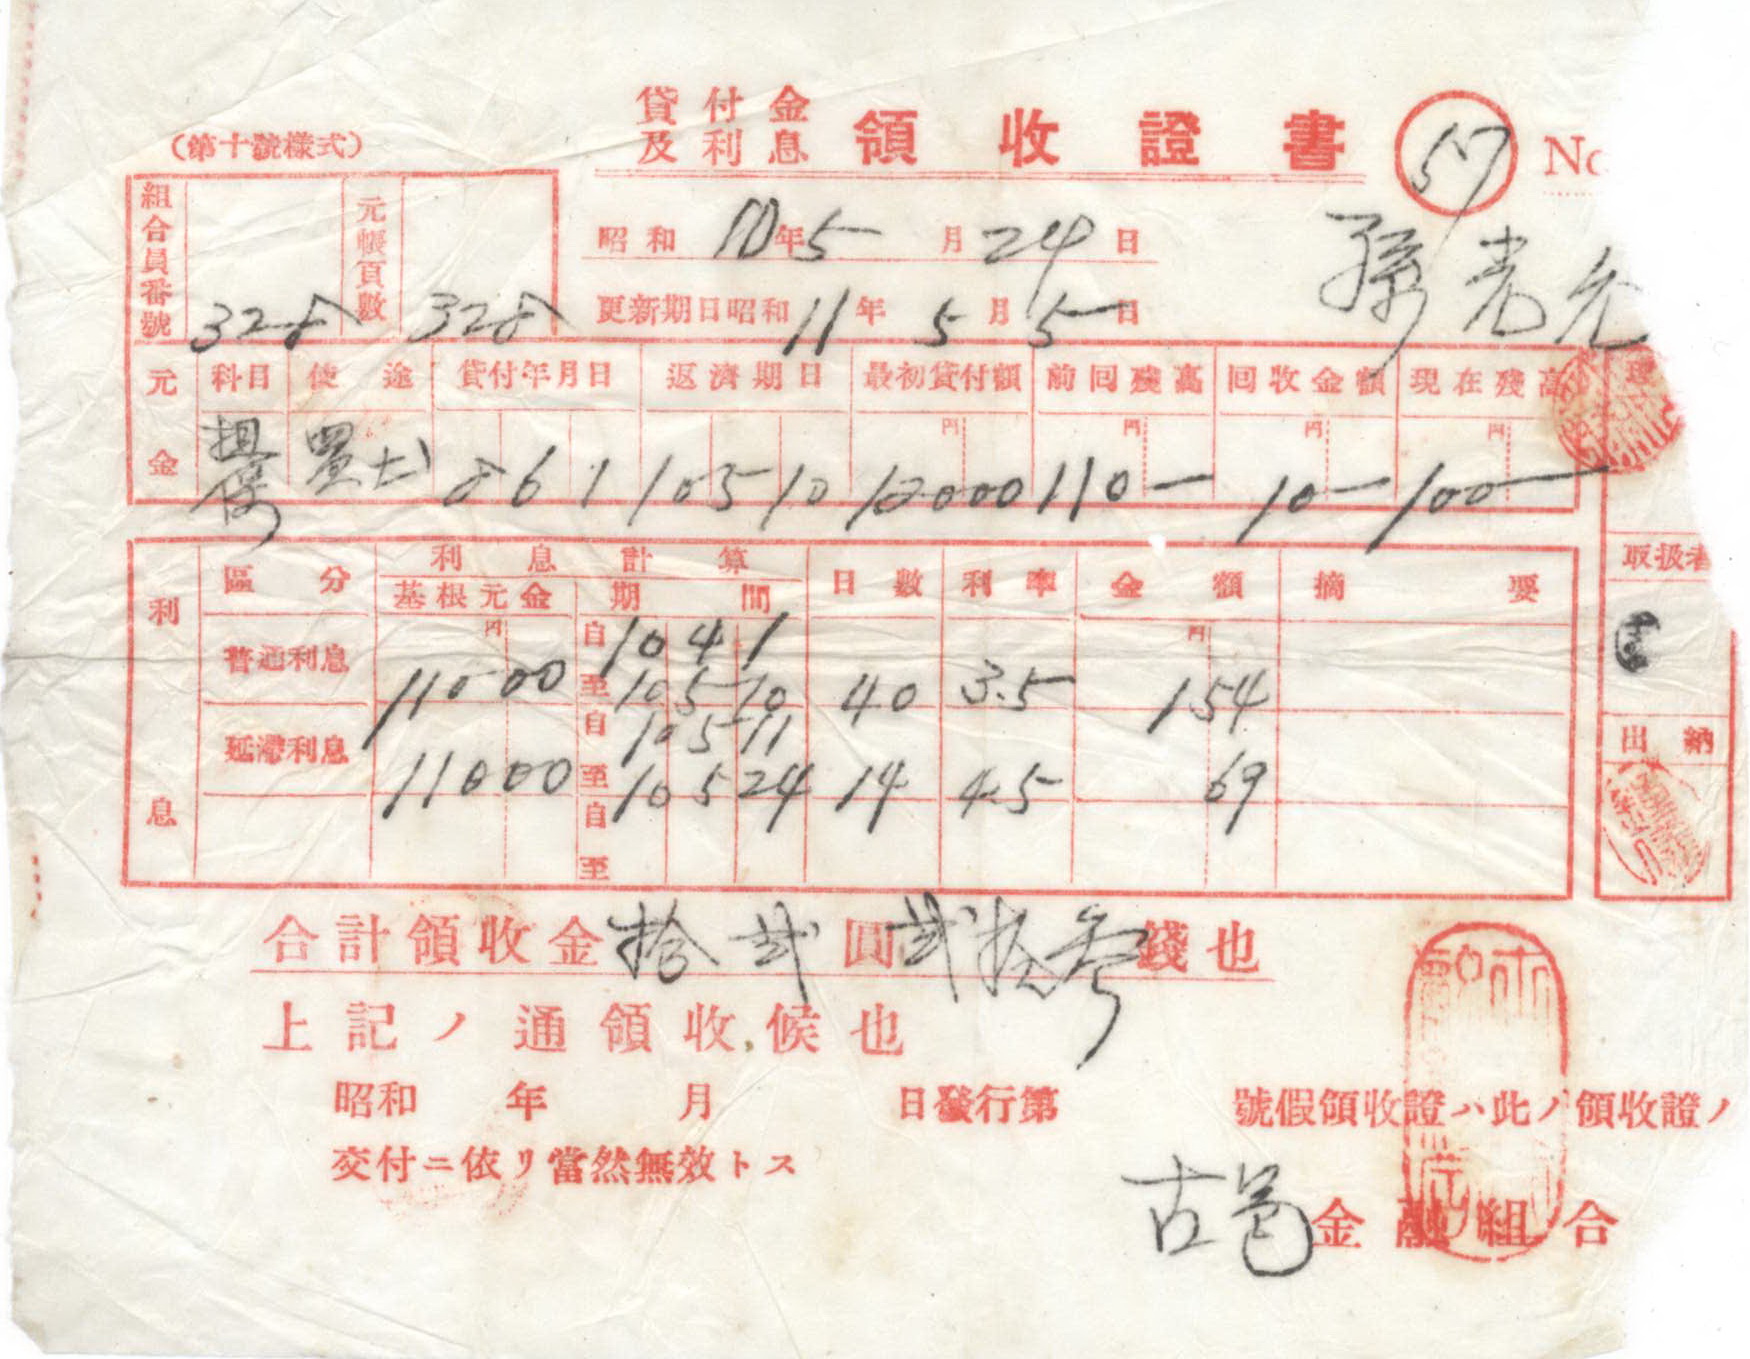 (第十號樣式)
貸付金
及利息
領收證書
57
No
組合員番號 328 元帳頁數 328
昭和 10年 5月 24日
更新期日昭和 11年 5月 5日
孫 光 允
元金 科目 使途 貸付年月日 返濟期日 最初貸付額 前回殘高 回收金額 現在殘高
円 円 円 円
置土 8 6 1 10 5 10 12000 110— 10— 100—
利息 區分 利息計算 日數 利率 金額 摘要
基根元金 期間
円 円
普通利息 11000 自 10 4 1 至 10 5 10 40 3.5 154
延滯利息 11000 自 10 5 11 至 10 5 24 14 4.5 69
自
至
取扱者
出納
合計領收金拾貳圓貳拾參錢也
上記ノ通領收候也
昭和 年 月 日發行第 號假領收證ハ此ノ領收證ノ
交付ニ依リ當然無效トス
古邑金融組合